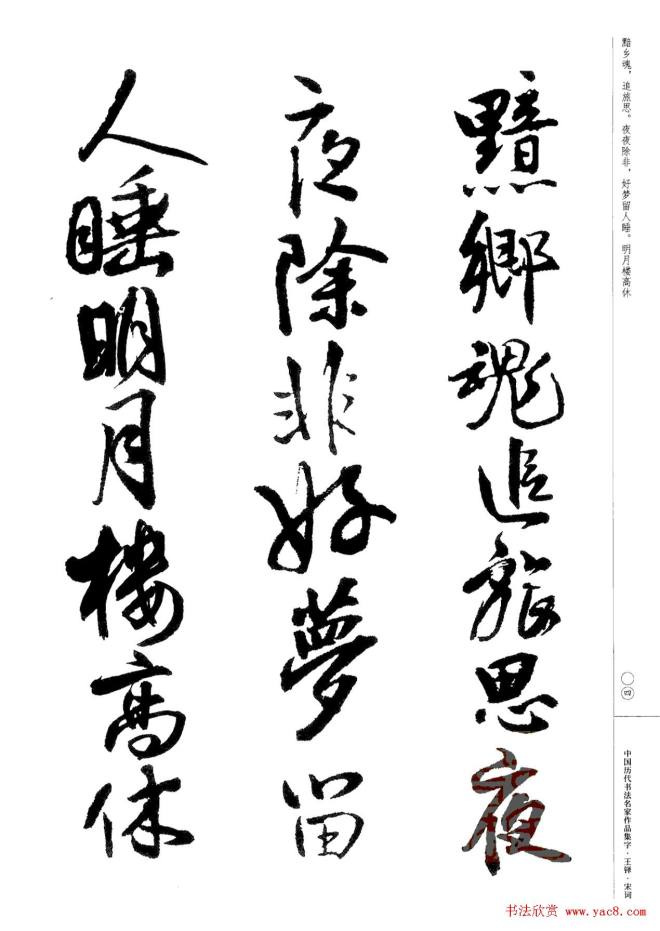 黯鄉魂追旅思夜
夜除非好夢留
人睡明月樓高休
黯乡魂，追旅思。夜夜除非，好梦留人睡。明月楼高休
〇四
中国历代书法名家作品集字·王铎·宋词
书法欣赏 www.yac8.com